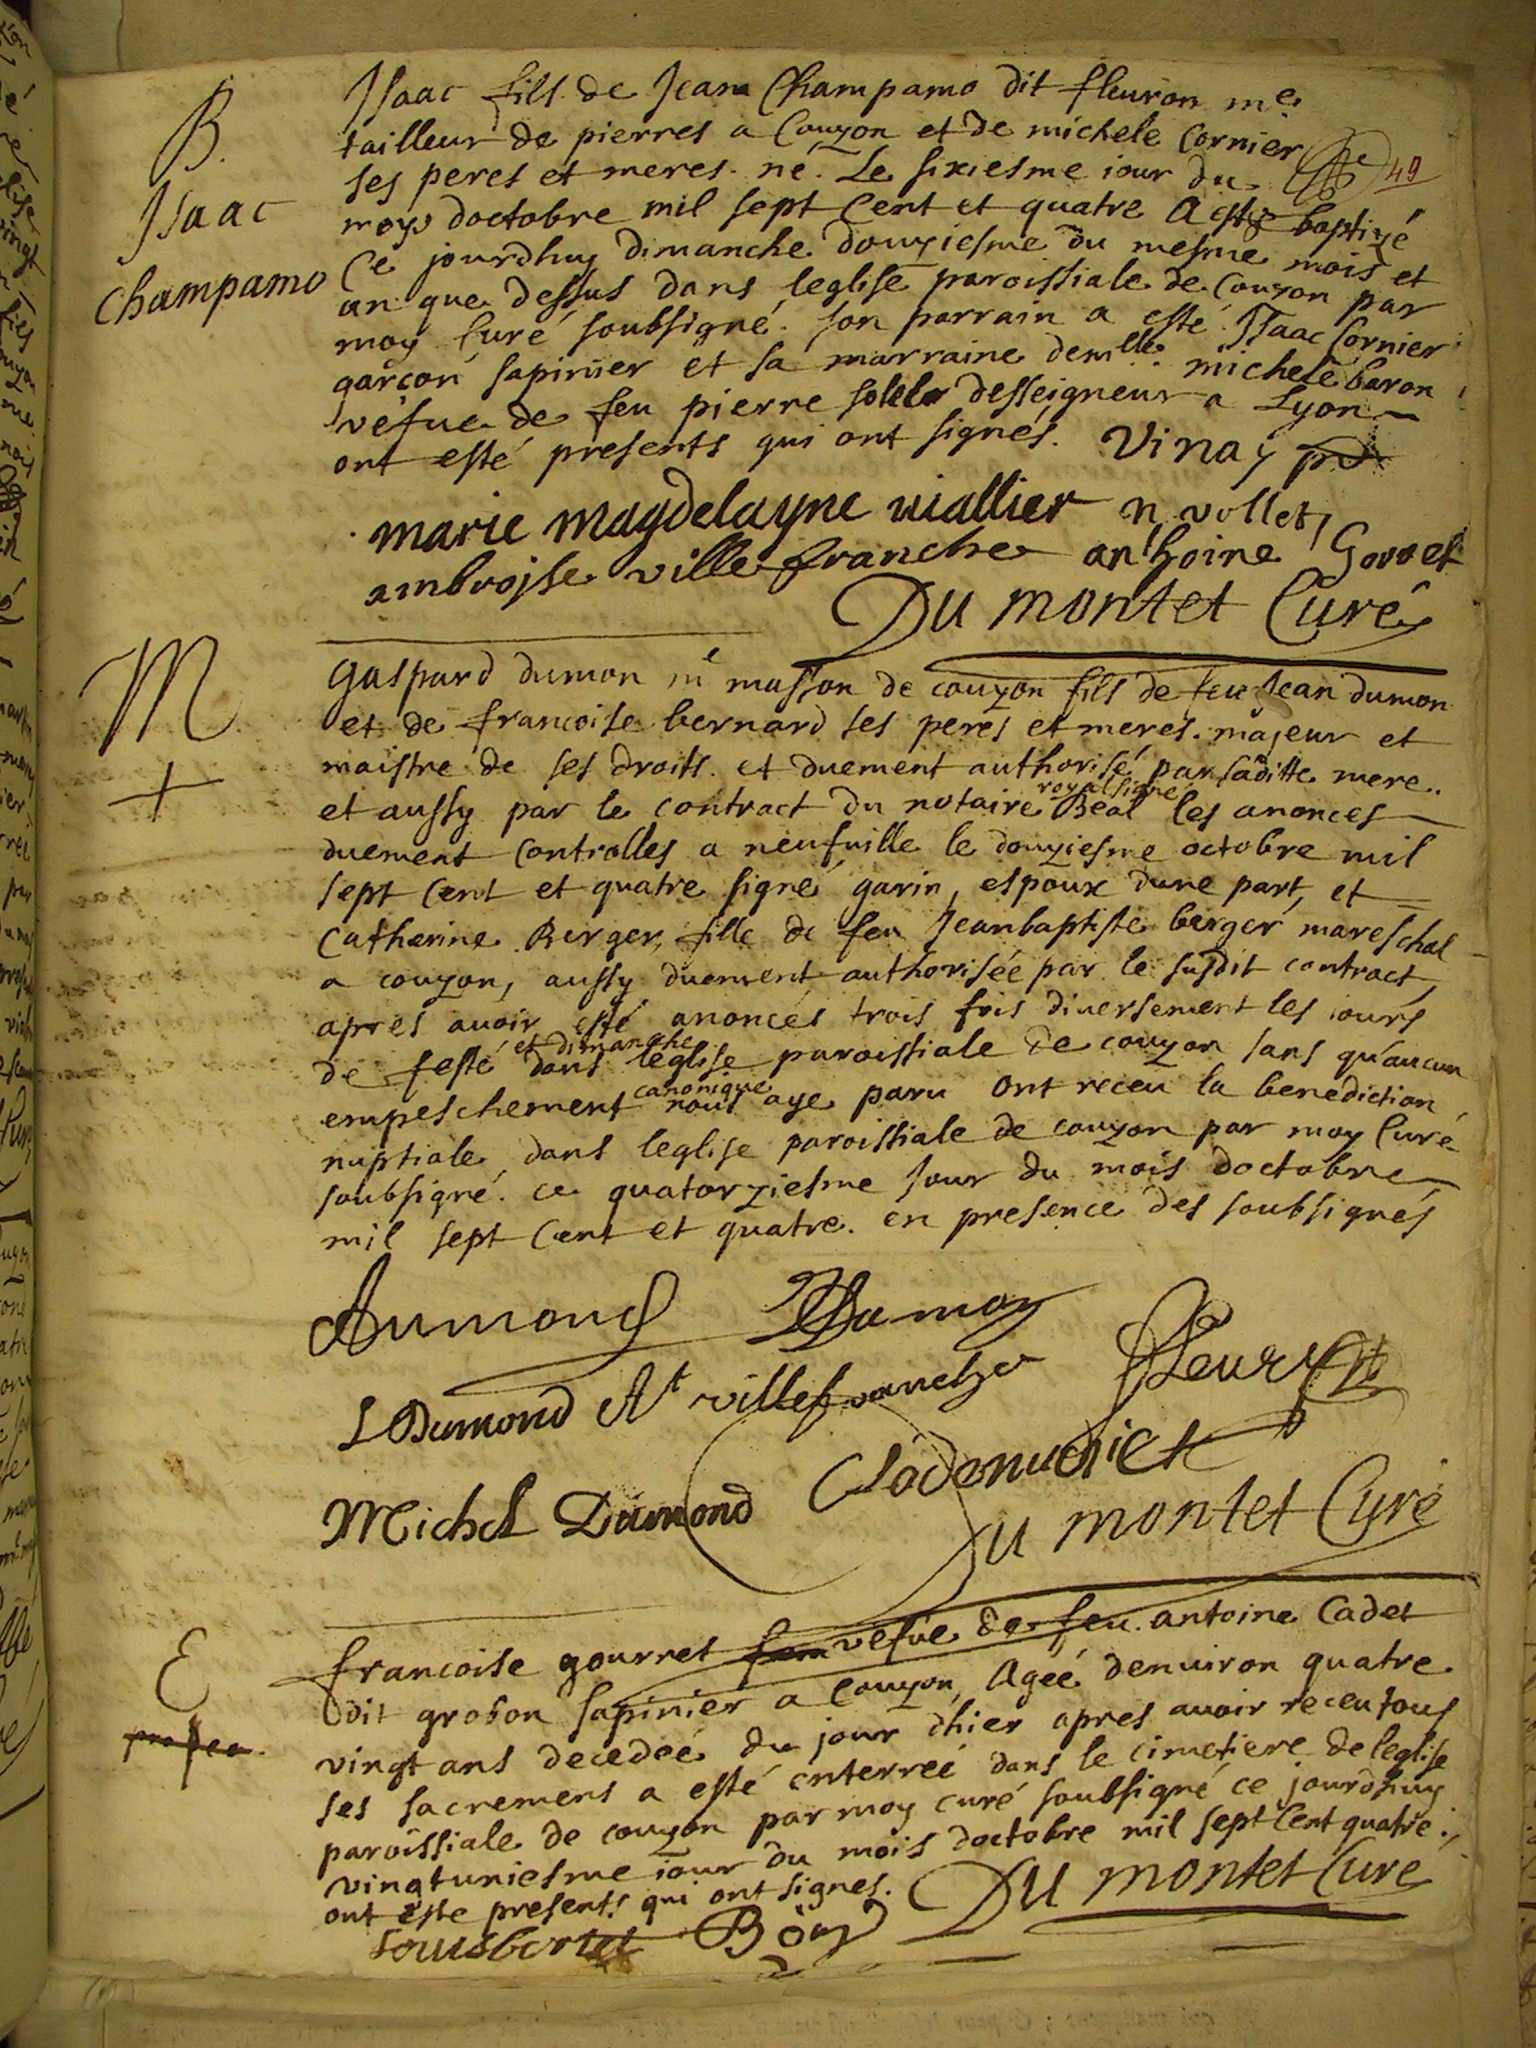 B.
Isaac
Champamo
Isaac fils de Jean Champamo dit fleuron me
tailleur de pierres a Couzon et de michele Cornier
ses peres et meres. né. Le sixiesme iour du
49
moys doctobre mil sept Cent et quatre A esté baptizé
Ce jourdhuy dimanche douziesme du mesme mois et
an que dessus dans leglise paroissiale de Couzon par
moy Curé soubsigné. son parrain a esté Isaac Cornier
garçon sapinier et sa marraine demlle. michele baron
vefue de feu pierre desseigneur a Lyon
ont esté presents qui ont signés. Vinay
marie magdelayne viallier n vollet
ambroise ville franche anthoine Gorret
Du montet Curé
M
+
Gaspard dumon m masson de couzon fils de feu Jean dumon
et de francoise bernard ses peres et meres. majeur et
maistre de ses droits. et duement authorisé par saditte mere.
et aussy par le contract du notaire royal signé Beal les anonces
duement Controlles a neufuille le douziesme octobre mil
sept Cent et quatre signé garin, espoux dune part, et
Catherine Berger, fille de feu Jeanbaptiste berger mareschal
a couzon, aussy duement authorisée par le susdit contract,
apres auoir esté anoncés trois fois diuersement les iours
de festé et dimanche dans leglise paroissiale de couzon sans qu'aucun
empeschement canonique nous aye paru ont receu la benediction
nuptiale dans leglise paroissiale de couzon par moy Curé
soubsigné. ce quatorziesme Jour du mois doctobre
mil sept Cent et quatre. en presence des soubsignés
Dumond Dumon
L Dumond At villefranche fleury
Michel Dumond Clodenudiet
Du montet Curé
E
francoise gourret fem vefue de feu antoine Cadet
dit grobon sapinier a Couzon, Ageé denuiron quatre
vingt ans decedée du jour dhier apres auoir receu tous
ses sacremens a esté enterreé dans le cimetiere de leglise
paroissiale de couzon par moy curé soubsigné ce jourdhuy
vingtuniesme iour du mois doctobre mil sept Cent quatre.
ont este presents qui ont signes. Du montet Curé
Louis bortet Böuy